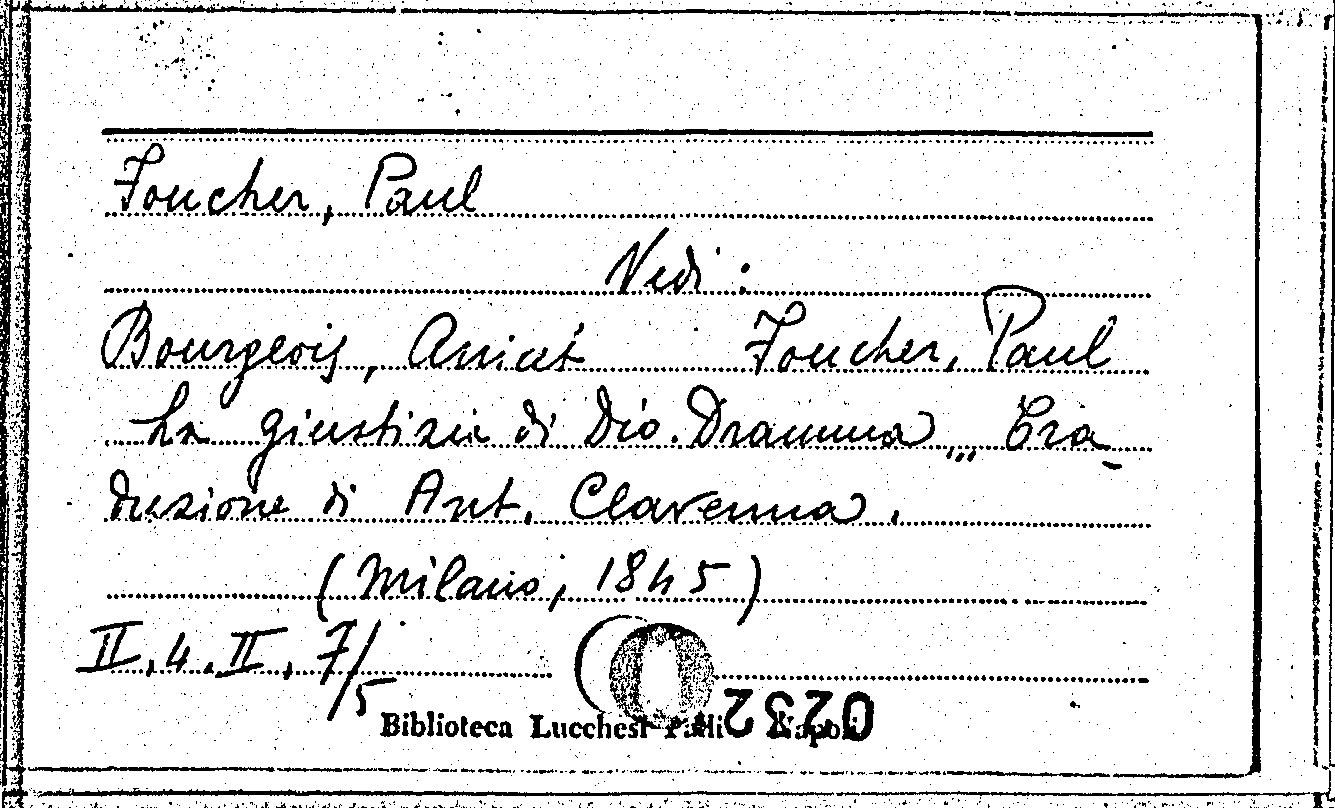 Foucher, Paul
Vedi:
Bourgeois, Anicet Foucher, Paul
La giustizia di Dio. Dramma,,, Tra_
duzione di Ant. Clavenna.
(Milano, 1845)
II.4.II.7/5
0232
Biblioteca Lucchesi Palli Napoli